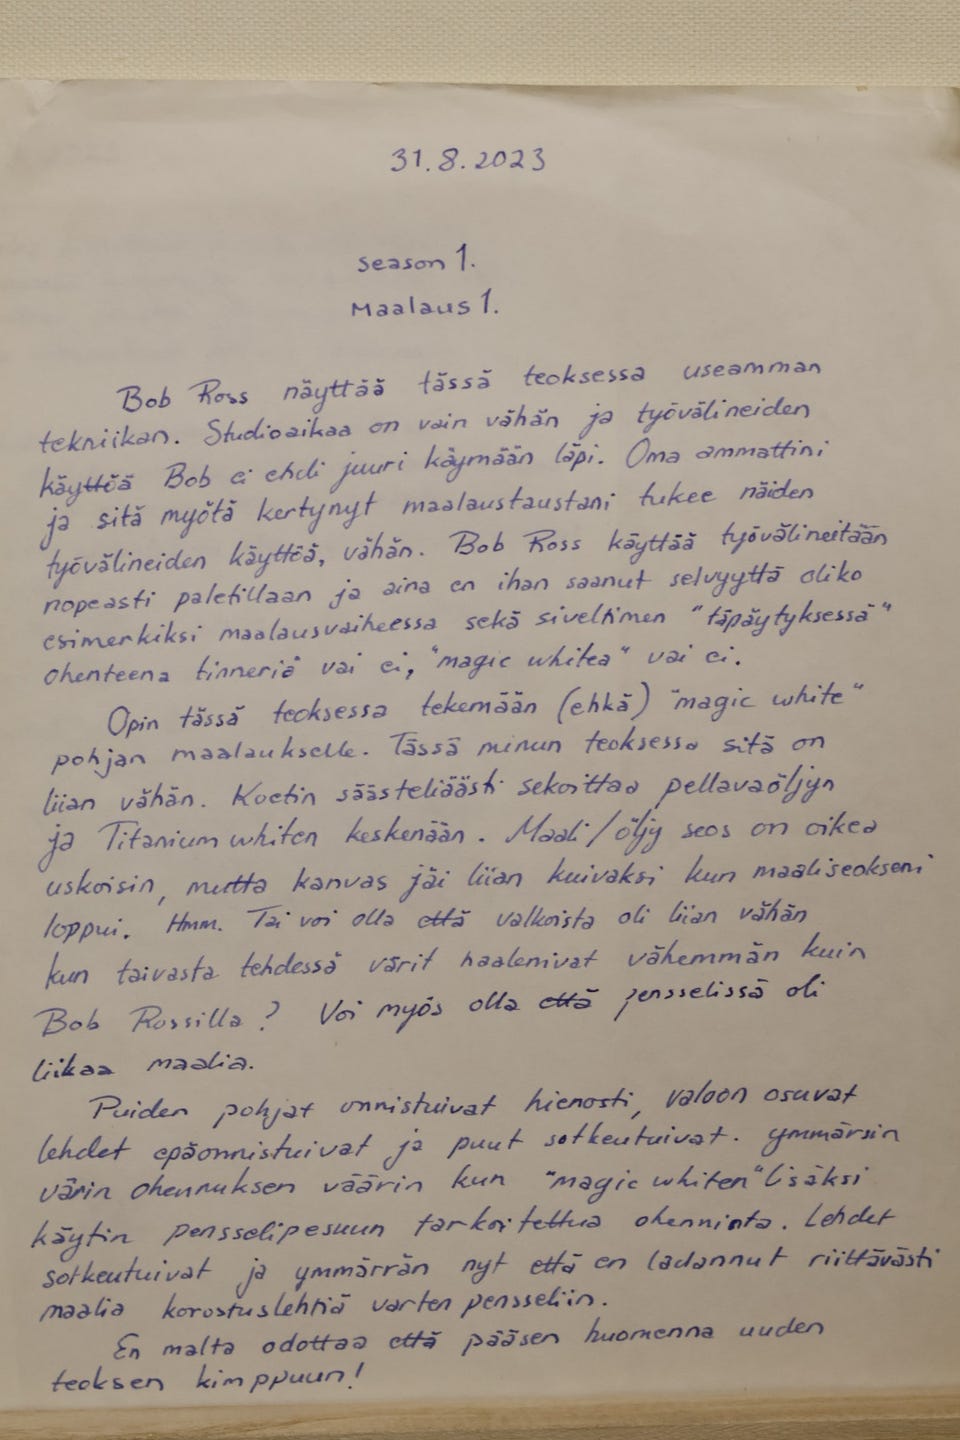 31.8.2023
season 1.
Maalaus 1.
Bob Ross näyttää tässä teoksessa useamman
tekniikan. Studioaikaa on vain vähän ja työvälineiden
käyttöä Bob ei ehdi juuri käymään läpi. Oma ammattini
ja sitä myötä kertynyt maalaustaustani tukee näiden
työvälineiden käyttöä, vähän. Bob Ross käyttää työvälineitään
nopeasti paletillaan ja aina en ihan saanut selvyyttä oliko
esimerkiksi maalausvaiheessa sekä siveltimen "täpäytyksessä"
ohenteena tinneriä vai ei, "magic whitea" vai ei.
Opin tässä teoksessa tekemään (ehkä) "magic white"
pohjan maalaukselle. Tässä minun teoksessa sitä on
liian vähän. Koetin säästeliäästi sekoittaa pellavaöljyn
ja Titanium whiten keskenään. Maali/öljy seos on oikea
uskoisin, mutta kanvas jäi liian kuivaksi kun maaliseokseni
loppui. Hmm. Tai voi olla että valkoista oli liian vähän
kun taivasta tehdessä värit haalenivat vähemmän kuin
Bob Rossilla? Voi myös olla että pensselissä oli
liikaa maalia.
Puiden pohjat onnistuivat hienosti, valoon osuvat
lehdet epäonnistuivat ja puut sotkeutuivat. ymmärsin
värin ohennuksen väärin kun "magic whiten" lisäksi
käytin pensselipesuun tarkoitettua ohenninta. Lehdet
sotkeutuivat ja ymmärrän nyt että en ladannut riittävästi
maalia korostuslehtiä varten pensseliin.
En malta odottaa että pääsen huomenna uuden
teoksen kimppuun!